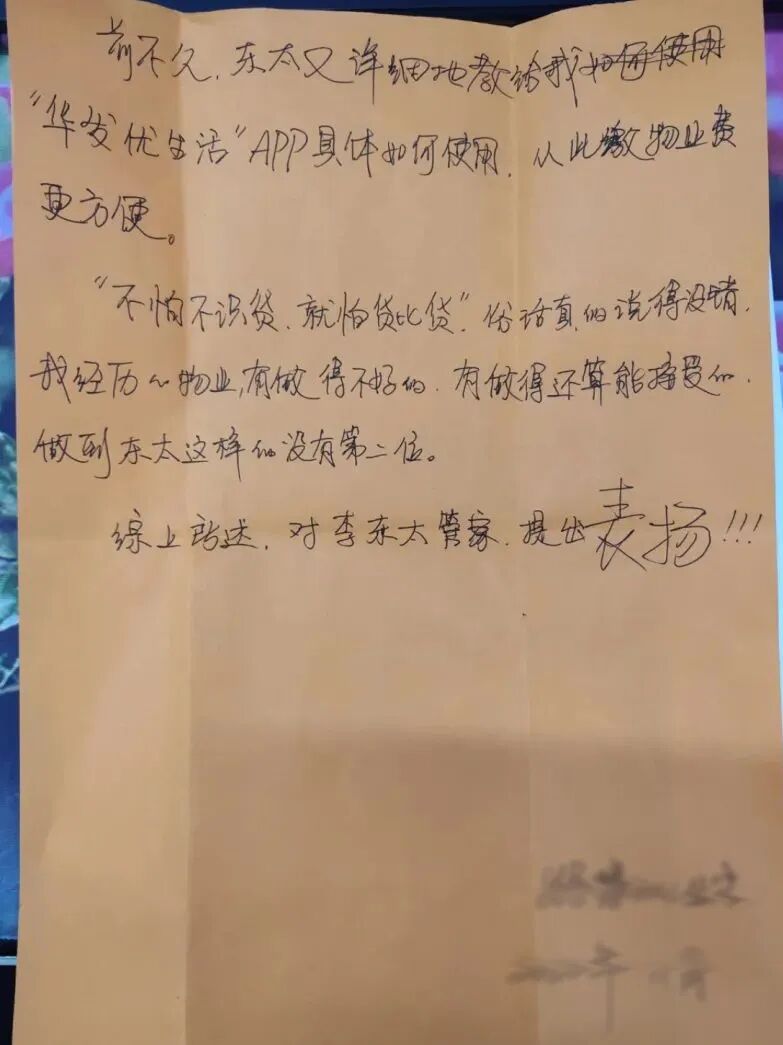 前不久,东太又详细地教给我如何使用
“华发优生活”APP具体如何使用,从此缴物业费
更方便。
“不怕不识货,就怕货比货”,俗话真的说得没错,
我经历的物业,有做得不好的,有做得还算能接受的,
做到东太这样的没有第二位。
综上所述,对李东太管家,提出表扬!!!